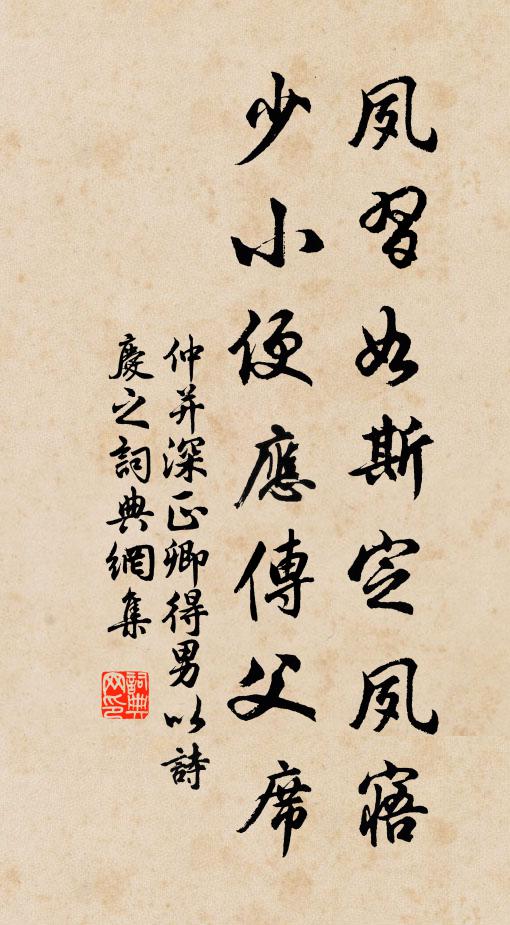 夙習如斯定夙寤
少小便應傳父席
仲并深正卿得男以詩
慶之詞典網集
詞典网印